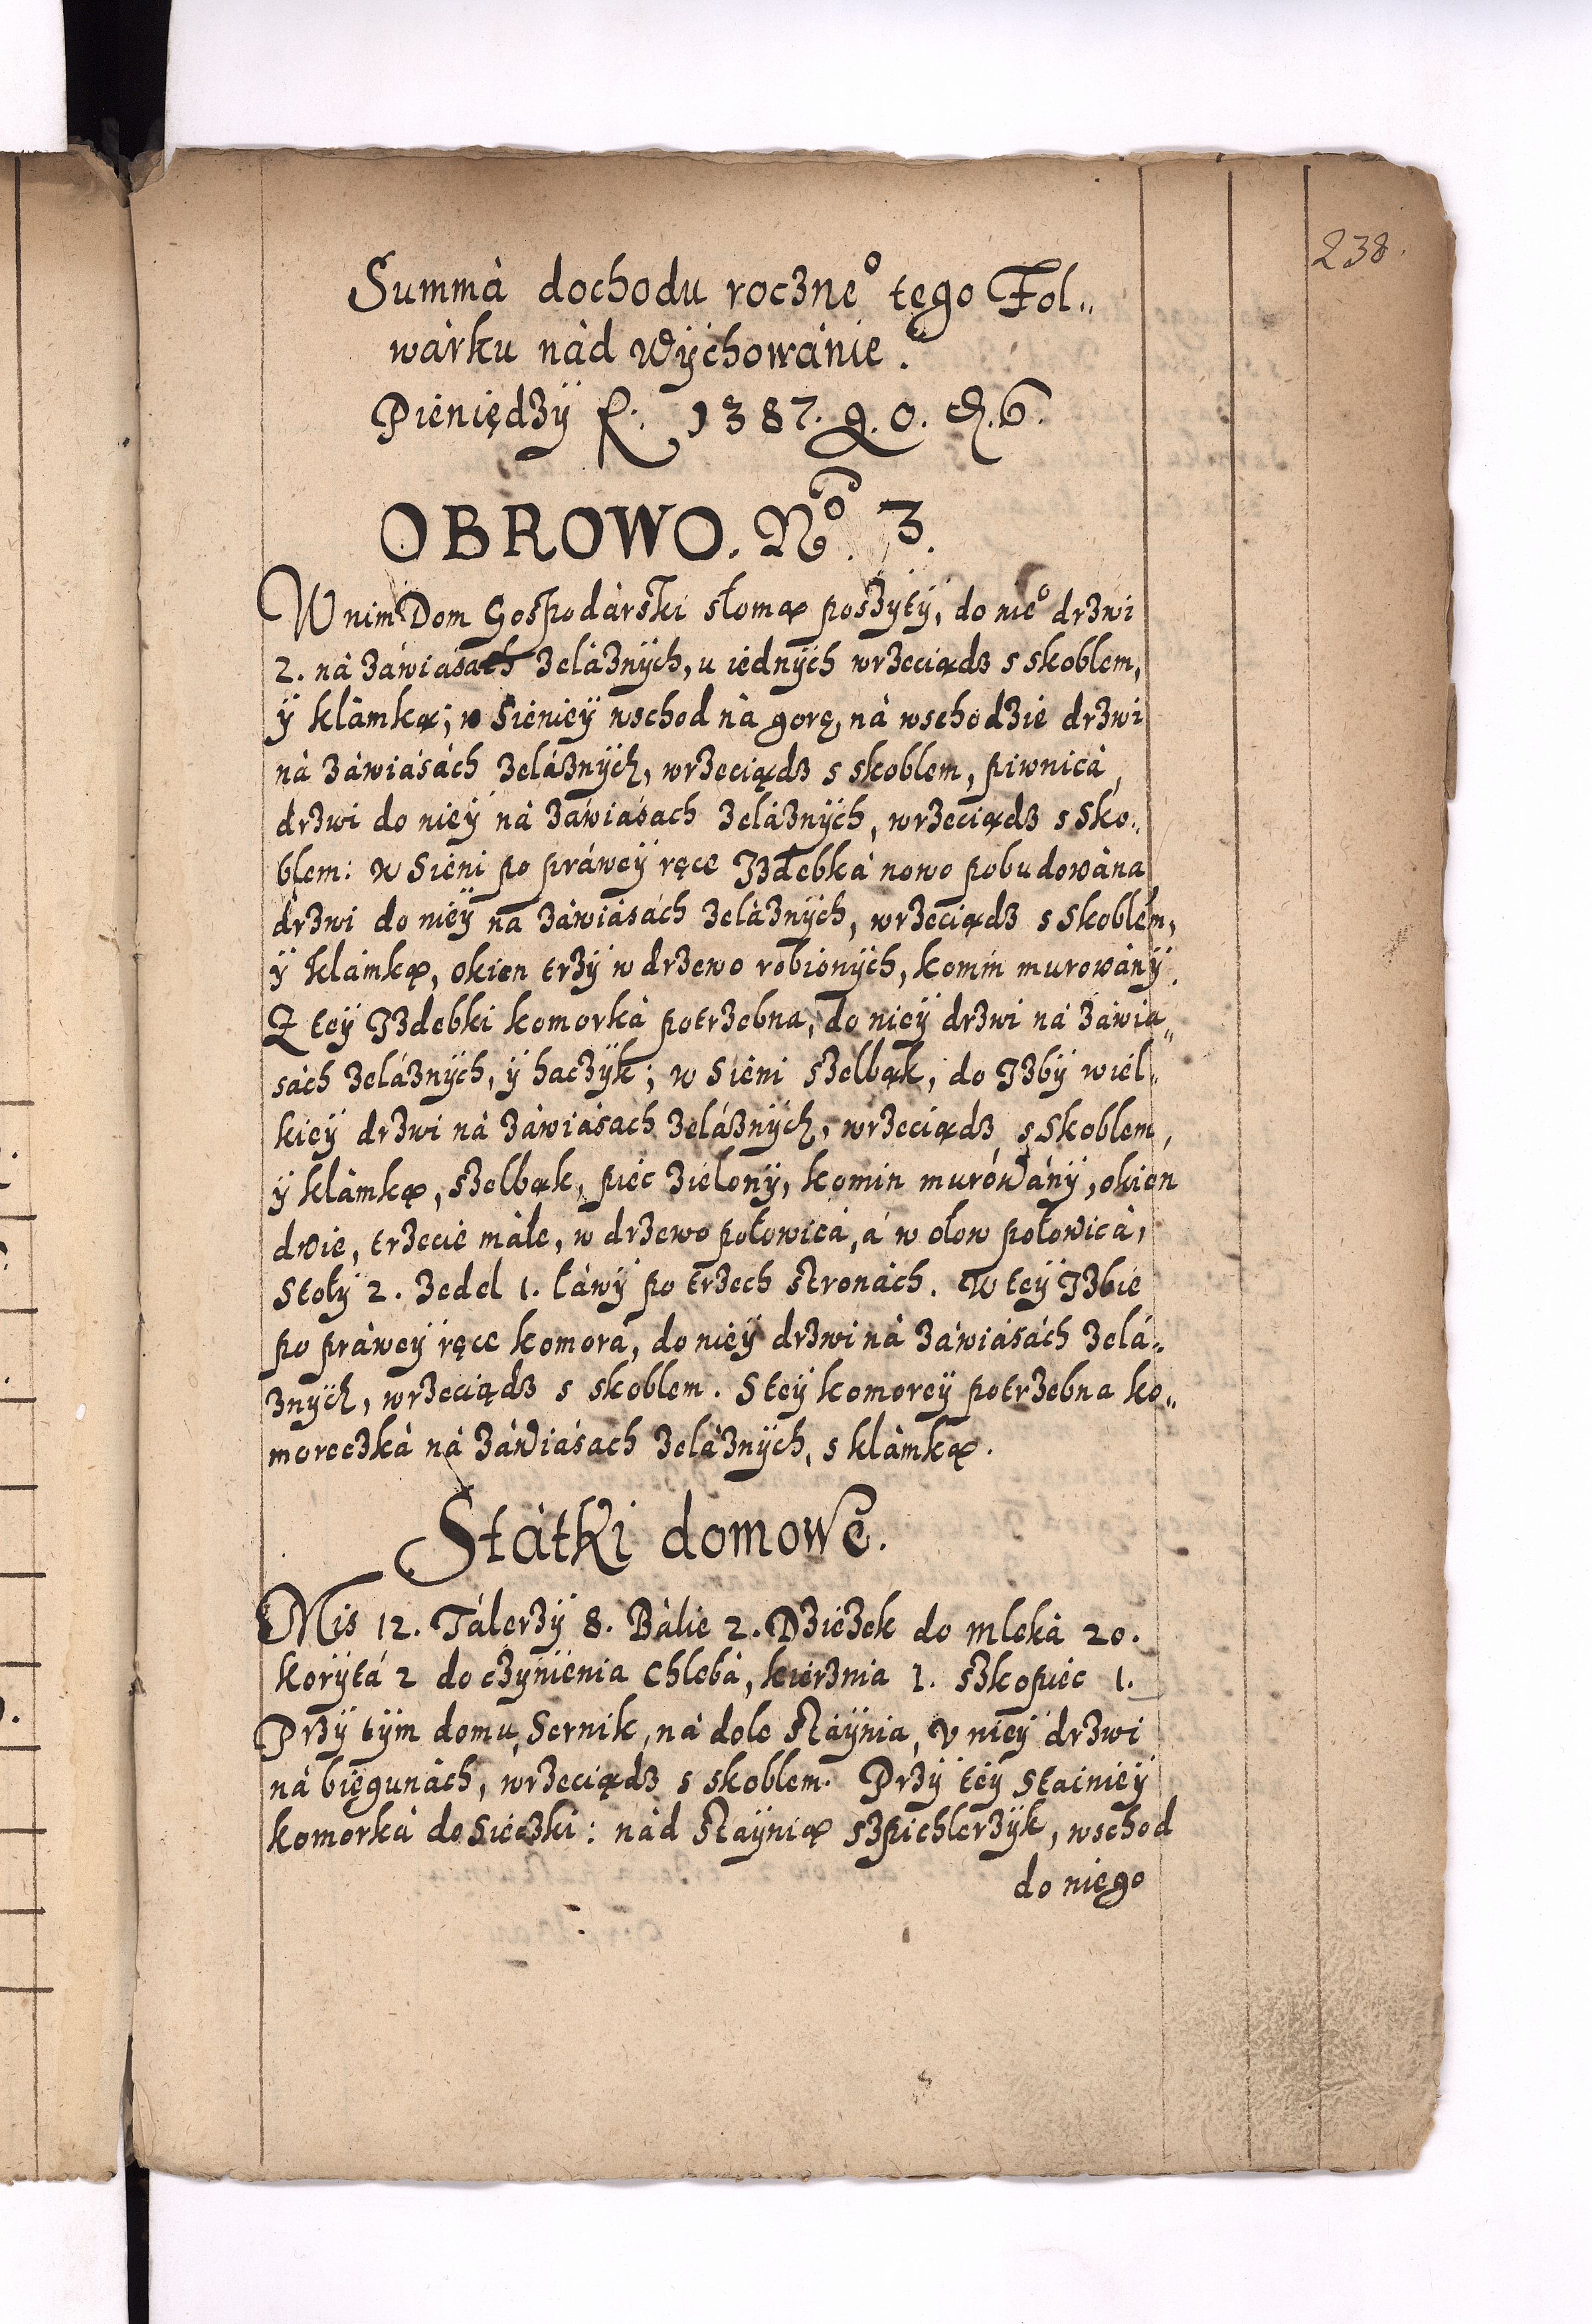 238.
Summà dochodu roczne° tego Fol„
wàrku nàd Wÿchowànie.
Pieniędzÿ f. 1387. g. 0. d. 6.
OBROWO. No. 3.
W nim Dom Gospodàrski słomą poszÿtÿ, do nie° drzwi
2. nà zàwiasach zelàznÿch, u iednÿch wrzeciądz s skoblem,
ÿ klàmką; w Sienieÿ wschod nà gorę, nà wschodzie drzwi
nà zàwiàsàch zelàznÿch, wrzeciądz s skoblem, piwnicà,
drzwi do nieÿ nà zàwiàsach zelàznÿch, wrzeciądz s Sko„
blem: w Sieni po pràweÿ ręce Izdebkà nowo pobudowàna
drzwi do nieÿ na zàwiàsàch zelàznÿch, wrzeciądz s Skoblem,
ÿ klàmką, okien trzÿ w drzewo robionÿch, komin murowànÿ.
Z teÿ Izdebki komorkà potrzebna, do nieÿ drzwi nà zàwia„
sàch zelàznÿch, ÿ haczÿk; w Sieni szelbąk, do Izbÿ wiel„
kieÿ drzwi nà zàwiàsach zelàznÿch, wrzeciądz s Skoblem,
ÿ klàmką, szelbąk, piec zielonÿ, komin murowànÿ, okien
dwie, trzecie màłe, w drzewo połowicà, à w ołow połowicà,
Stołÿ 2. zedel 1. łàwÿ po trzech stronàch. W teÿ Izbie
po pràweÿ ręce komorà, do nieÿ drzwi nà zàwiàsàch zelà„
znÿch, wrzeciądz s skoblem. S teÿ komoreÿ potrzebna ko„
moreczkà nà zàwiàsach zelàznÿch, s klàmką.
Stàtki domowe.
Mis 12. Tàlerzÿ 8. Bàlie 2. Dziezek do mlekà 20.
korÿtà 2 do czÿnienia Chlebà, kierznia 1. szkopiec 1.
Przÿ tÿm domu, Sernik, nà dole staÿnia, v nieÿ drzwi
nà biegunàch, wrzeciądz s skoblem. Przÿ teÿ Stainieÿ
komorkà do Sieczki: nàd staÿnią szpichlerzÿk, wschod
do niego